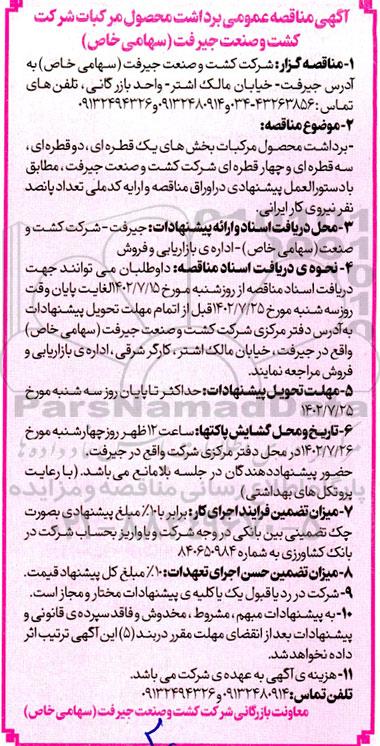 آگهی مناقصه عمومی برداشت محصول مرکبات شرکت
کشت و صنعت جیرفت (سهامی خاص)
۱-مناقصه گزار: شرکت کشت و صنعت جیرفت (سهامی خاص) به
آدرس جیرفت- خیابان مالک اشتر- واحد بازرگانی، تلفن های
تماس: ۴۳۲۶۳۸۵۶-۰۳۴ و ۰۹۱۳۲۴۸۰۹۱۴ و ۰۹۱۳۲۴۹۴۳۲۶
۲-موضوع مناقصه:
-برداشت محصول مرکبات بخش های یک قطره ای، دو قطره ای،
سه قطره ای و چهار قطره ای شرکت کشت و صنعت جیرفت، مطابق
با دستورالعمل پیشنهادی در اوراق مناقصه و ارایه کدملی تعداد پانصد
نفر نیروی کار ایرانی
۳-محل دریافت اسناد و ارائه پیشنهادات: جیرفت- شرکت کشت و
صنعت (سهامی خاص)- اداره ی بازاریابی و فروش
۴-نحوه ی دریافت اسناد مناقصه: داوطلبان می توانند جهت
دریافت اسناد مناقصه از روز شنبه مورخ ۱۴۰۲/۷/۱۵ لغایت پایان وقت
روز سه شنبه مورخ ۱۴۰۲/۷/۲۵ قبل از اتمام مهلت تحویل پیشنهادات
به آدرس دفتر مرکزی شرکت کشت و صنعت جیرفت (سهامی خاص)
واقع در جیرفت، خیابان مالک اشتر، کارگر شرقی، اداره ی بازاریابی و
فروش مراجعه نمایند.
۵-مهلت تحویل پیشنهادات: حداکثر تا پایان روز سه شنبه مورخ
۱۴۰۲/۷/۲۵
۶-تاریخ و محل گشایش پاکتها: ساعت ۱۲ ظهر روز چهارشنبه مورخ
۱۴۰۲/۷/۲۶ در محل دفتر مرکزی شرکت واقع در جیرفت.
حضور پیشنهاددهندگان در جلسه بلامانع می باشد. (با رعایت
پروتکل های بهداشتی)
۷-میزان تضمین فرایند اجرای کار: برابر با ۱۰٪ مبلغ پیشنهادی بصورت
چک تضمینی بین بانکی در وجه شرکت و یا واریز بحساب شرکت در
بانک کشاورزی به شماره ۸۴۰۶۵۰۹۸۴
۸-میزان تضمین حسن اجرای تعهدات: ۱۰٪ مبلغ کل پیشنهاد قیمت.
۹-شرکت در رد یا قبول یک یا کلیه ی پیشنهادات مختار و مجاز است.
۱۰-به پیشنهادات مبهم، مشروط، مخدوش و فاقد سپرده ی قانونی و
پیشنهادات بعد از انقضای مهلت مقرر در بند (۵) این آگهی ترتیب اثر
داده نخواهد شد.
۱۱-هزینه ی آگهی به عهده ی شرکت می باشد.
تلفن تماس: ۰۹۱۳۲۴۸۰۹۱۴ و ۰۹۱۳۲۴۹۴۳۲۶
معاونت بازرگانی شرکت کشت و صنعت جیرفت (سهامی خاص)
ParsNamadData